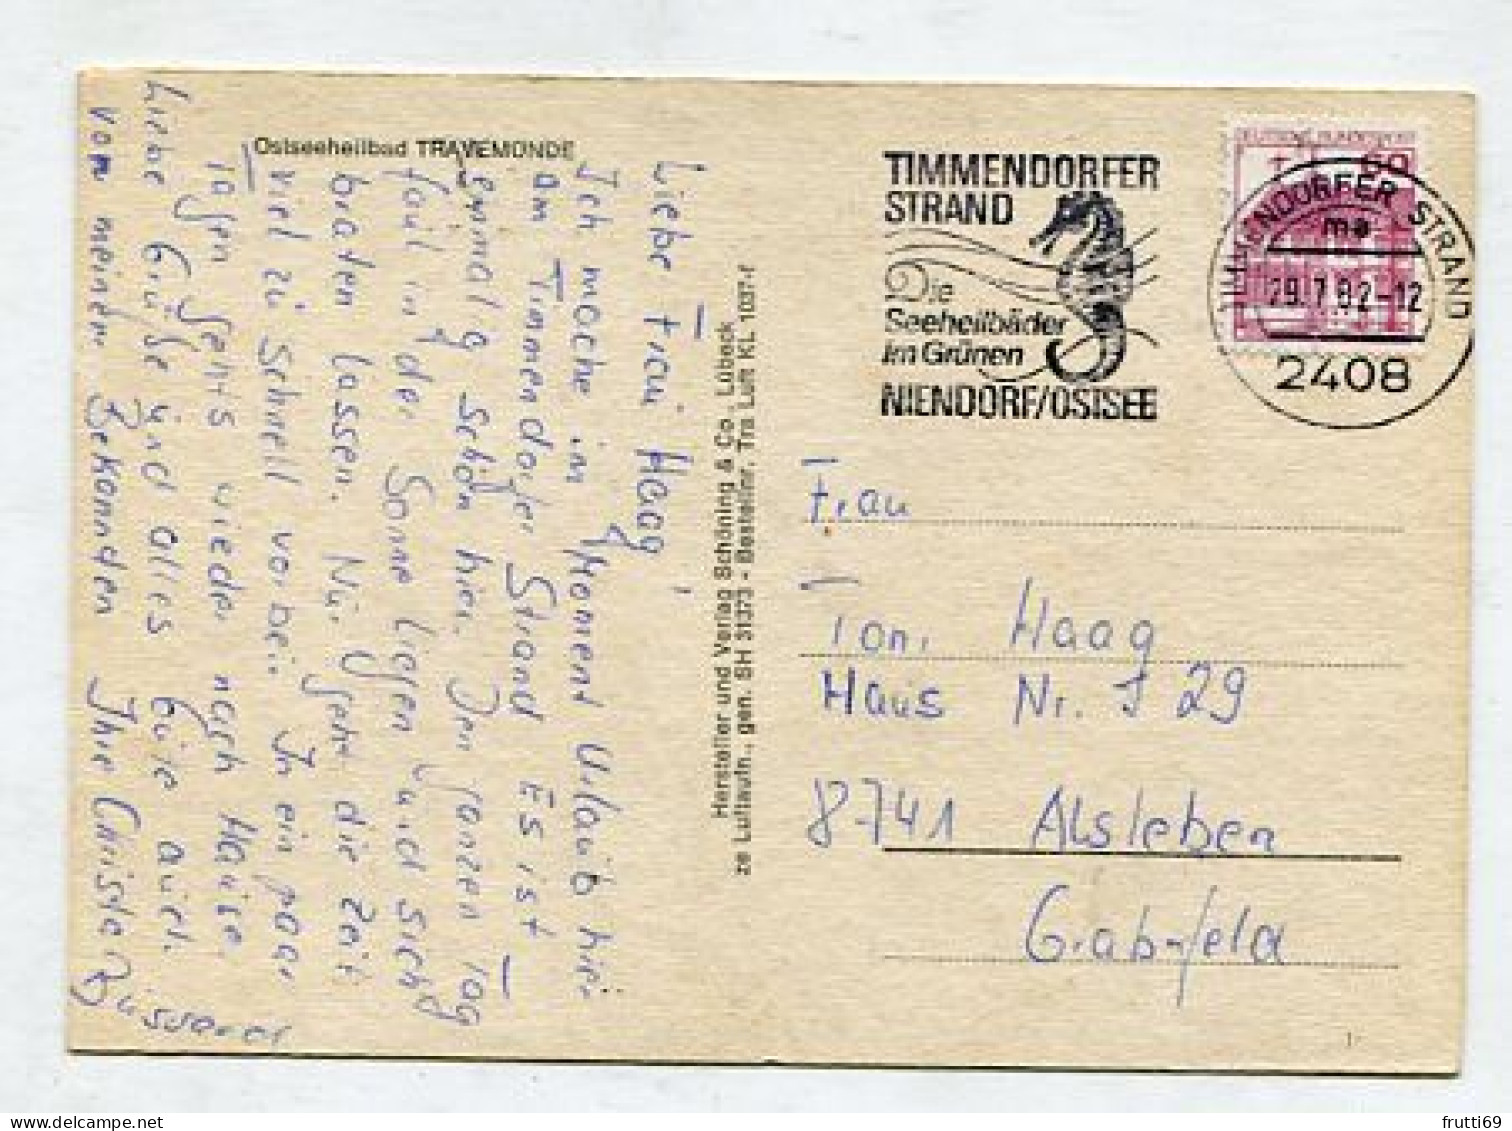 Ostseeheilbad TRAVEMÜNDE
Liebe Frau Haag,
Ich mache im Moment Urlaub hier
am Timmendorfer Strand Es ist
einmalig schön hier. Den ganzen Tag
faul in der Sonne liegen und sich
braten lassen. Nur geht die Zeit
viel zu schnell vorbei. In ein paar
Tagen gehts wieder nach Hause.
Liebe Grüße und alles Gute auch
von meinen Bekannten Ihre Christl
Hersteller und Verlag Schöning & Co, Lübeck
ze Luftaufn., gen. SH 31373 - Bestellnr. Tra Luft KL 1037-f
TIMMENDORFER
STRAND
Die
Seeheilbäder
im Grünen
NIENDORF/OSTSEE
DEUTSCHE BUNDESPOST
60
TIMMENDORFER STRAND
ma
29.7.82-12
2408
Frau
Toni Haag
Haus Nr. 29
8741 Alsleben
Grabfeld
frutti69